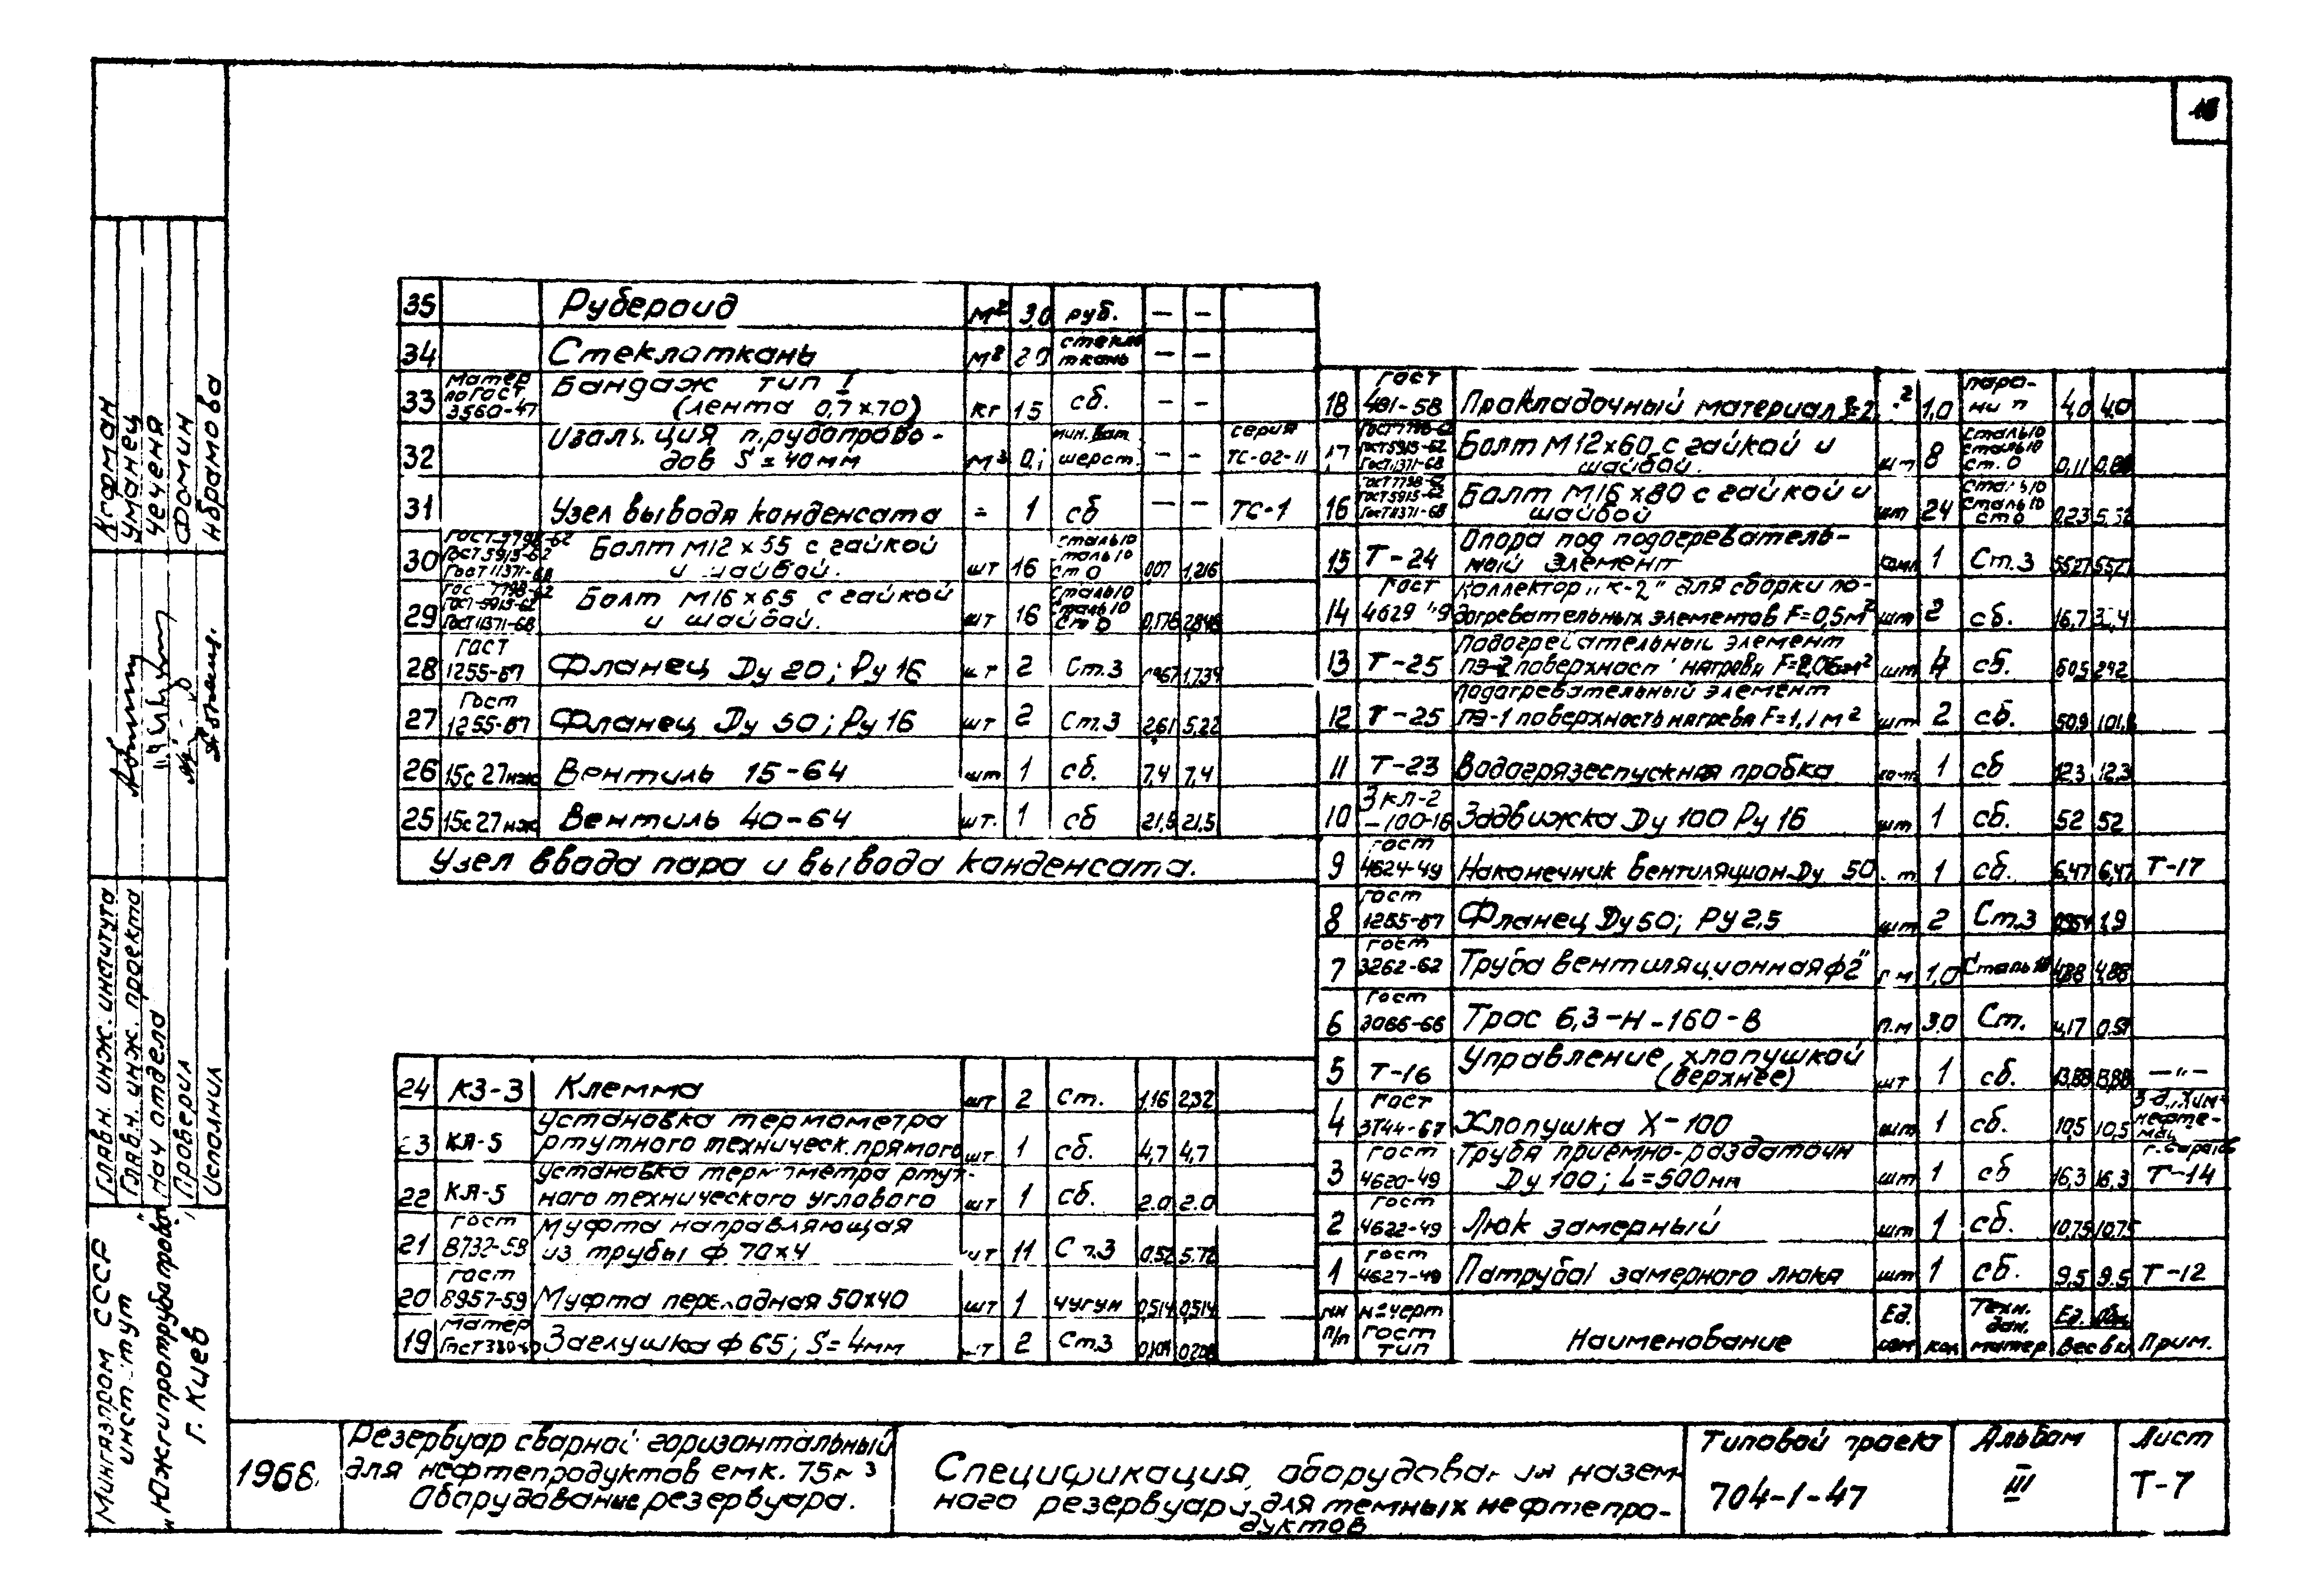 35 Рубероид м² 3,0 руб. — —
34 Стеклоткань м² стекло ткань — —
33 Матер по ГОСТ 3560-47 Бандаж тип I (лента 0,7×70) кг 15 сб. — —
32 Изоляция трубопрово-
дов S=40мм м³ шерст. — — серия ТС-02-11
31 Узел вывода конденсата 1 сб — — ТС-1
30 ГОСТ 7798-62 ГОСТ 5915-62 ГОСТ 11371-68 Болт М12×55 с гайкой
и шайбой. шт 16 сталь10 сталь10 ст0 1,216
29 ГОСТ 7798-62 ГОСТ 5915-62 ГОСТ 11371-68 Болт М16×65 с гайкой
и шайбой. шт 16 сталь10 сталь10 ст0 0,178 2,848
28 ГОСТ 1255-67 Фланец Ду 20; Ру 16 шт 2 Ст.3
27 ГОСТ 1255-67 Фланец Ду 50; Ру 16 шт 2 Ст.3 2,61 5,22
26 15с27нж Вентиль 15-64 шт 1 сб. 7,4 7,4
25 15с27нж Вентиль 40-64 шт. 1 сб 21,5 21,5
Узел ввода пара и вывода конденсата.
24 КЗ-3 Клемма шт 2 Ст. 1,16 2,32
23 КЯ-5 Установка термометра
ртутного техническ. прямого шт. 1 сб. 4,7 4,7
22 КЯ-5 Установка термометра ртут-
ного технического углового шт 1 сб. 2.0 2.0
21 ГОСТ 8732-58 Муфта направляющая
из трубы ф 70×4 шт 11 Ст.3 0,52 5,72
20 ГОСТ 8957-59 Муфта переходная 50×40 шт 1 чугун 0,514 0,514
19 Матер ГОСТ 380-60 Заглушка ф 65; S=4мм шт 2 Ст.3 0,104 0,208
18 ГОСТ 481-58 Прокладочный материал S=2 м² 1,0 паро-
нит 4,0 4,0
17 ГОСТ 7798-62 ГОСТ 5915-62 ГОСТ 11371-68 Болт М12×60 с гайкой и
шайбой. шт 8 Сталь10 Сталь10 Ст.0 0,11 0,88
16 ГОСТ 7798-62 ГОСТ 5915-62 ГОСТ 11371-68 Болт М16×80 с гайкой и
шайбой шт 24 Сталь10 Сталь10 Ст0 0,23 5,52
15 Т-24 Опора под подогреватель-
ный элемент компл 1 Ст.3 55,27 55,27
14 ГОСТ 4629-49 Коллектор „К-2" для сборки по-
догревательных элементов F=0,5м² шт 2 сб. 16,7
13 Т-25 Подогревательный элемент
ПЭ-2 поверхность нагрева F=2,06м² шт 4 сб. 60,5 242
12 Т-25 Подогревательный элемент
ПЭ-1 поверхность нагрева F=1,1м² шт 2 сб. 50,9 101,8
11 Т-23 Водогрязеспускная пробка 1 сб 12,3 12,3
10 Зкл-2-100-16 Задвижка Ду 100 Ру 16 шт 1 сб. 52 52
9 ГОСТ 4624-49 Наконечник вентиляцион. Ду 50 шт 1 сб. 6,47 6,47 Т-17
8 ГОСТ 1255-67 Фланец Ду50; Ру 2,5 шт 2 Ст.3 0,954 1,9
7 ГОСТ 3262-62 Труба вентиляционная ф2" п.м 1,0 Сталь 10 4,88 4,88
6 ГОСТ 3066-66 Трос 6,3-Н-160-В п.м 3,0 Ст.
5 Т-16 Управление хлопушкой
(верхнее) шт 1 сб. 13,88 13,88 —"—
4 ГОСТ 3744-67 Хлопушка Х-100 шт 1 сб. 10,5 10,5 З-д „Хим-
нефте-
маш
г. Саратов
3 ГОСТ 4620-49 Труба приемно-раздаточн
Ду 100; L=500мм шт 1 сб 16,3 16,3 Т-14
2 ГОСТ 4622-49 Люк замерный шт 1 сб. 10,75 10,75
1 ГОСТ 4627-49 Патрубок замерного люка шт 1 сб. 9,5 9.5 Т-12
NN п/п №черт ГОСТ тип Наименование Ед. изм кол Техн. дан. матер Ед. Общ. Вес в кг Прим.
18
Главн. инж. института Кофман
Главн. инж. проекта Уманец
Нач отдела Чеченя
Проверил Фомин
Исполнил Абрамова
Мингазпром СССР
институт
„Южгипротрубопровод"
г. Киев
1968г.
Резервуар сварной горизонтальный
для нефтепродуктов емк. 75м³
Оборудование резервуара.
Спецификация оборудования назем-
ного резервуара для темных нефтепро-
дуктов
Типовой проект
704-1-47
Альбом
III
Лист
Т-7